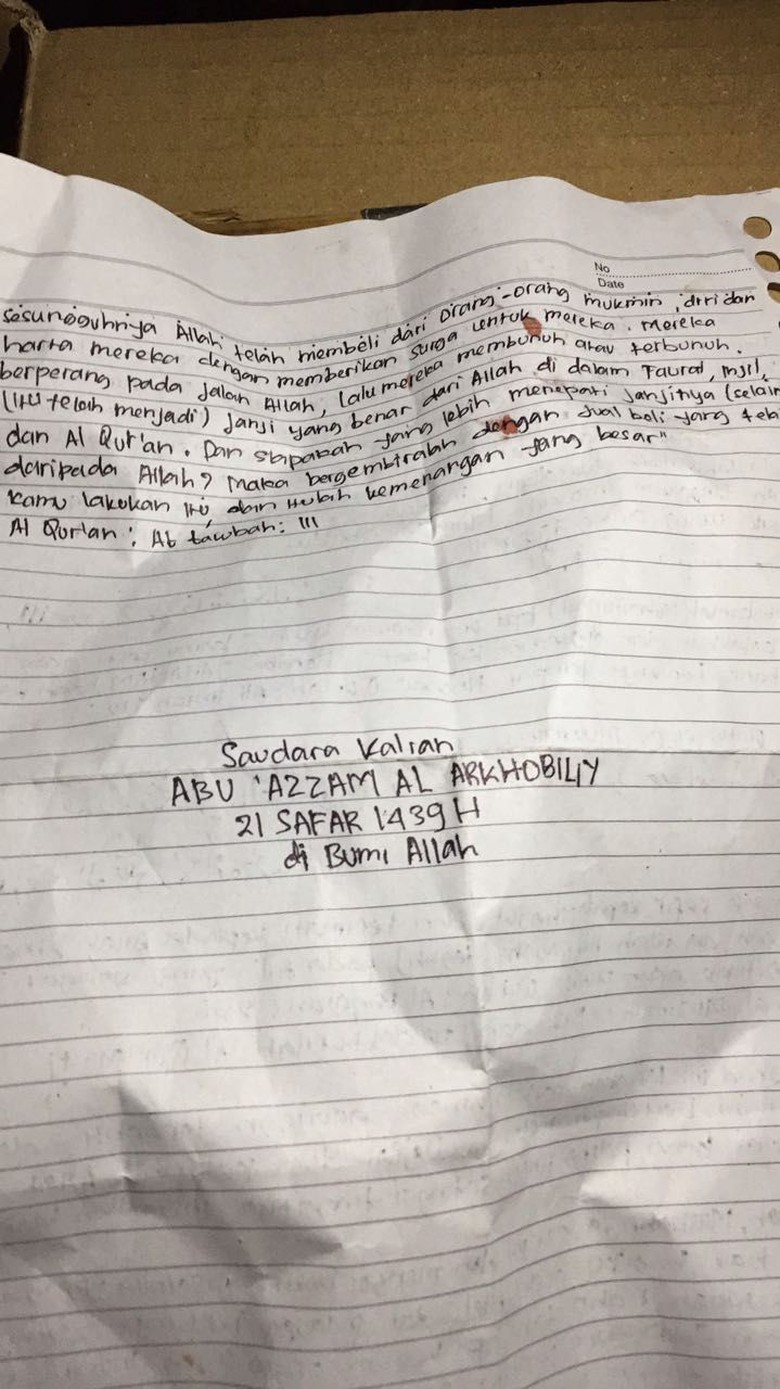 No
Date
Sesungguhnya Allah telah membeli dari orang-orang mukmin, diri dan
harta mereka dengan memberikan surga untuk mereka. Mereka
berperang pada jalan Allah, lalu mereka membunuh atau terbunuh.
(Itu telah menjadi) janji yang benar dari Allah di dalam Taurat, Injil,
dan Al Qur'an. Dan siapakah yang lebih menepati janjinya (selain
daripada Allah? Maka bergembiralah dengan jual beli yang tela
kamu lakukan itu, dan itulah kemenangan yang besar"
Al Qur'an : At tawbah: 111
Saudara Kalian
ABU 'AZZAM AL ARKHOBILIY
21 SAFAR 1439 H
di Bumi Allah